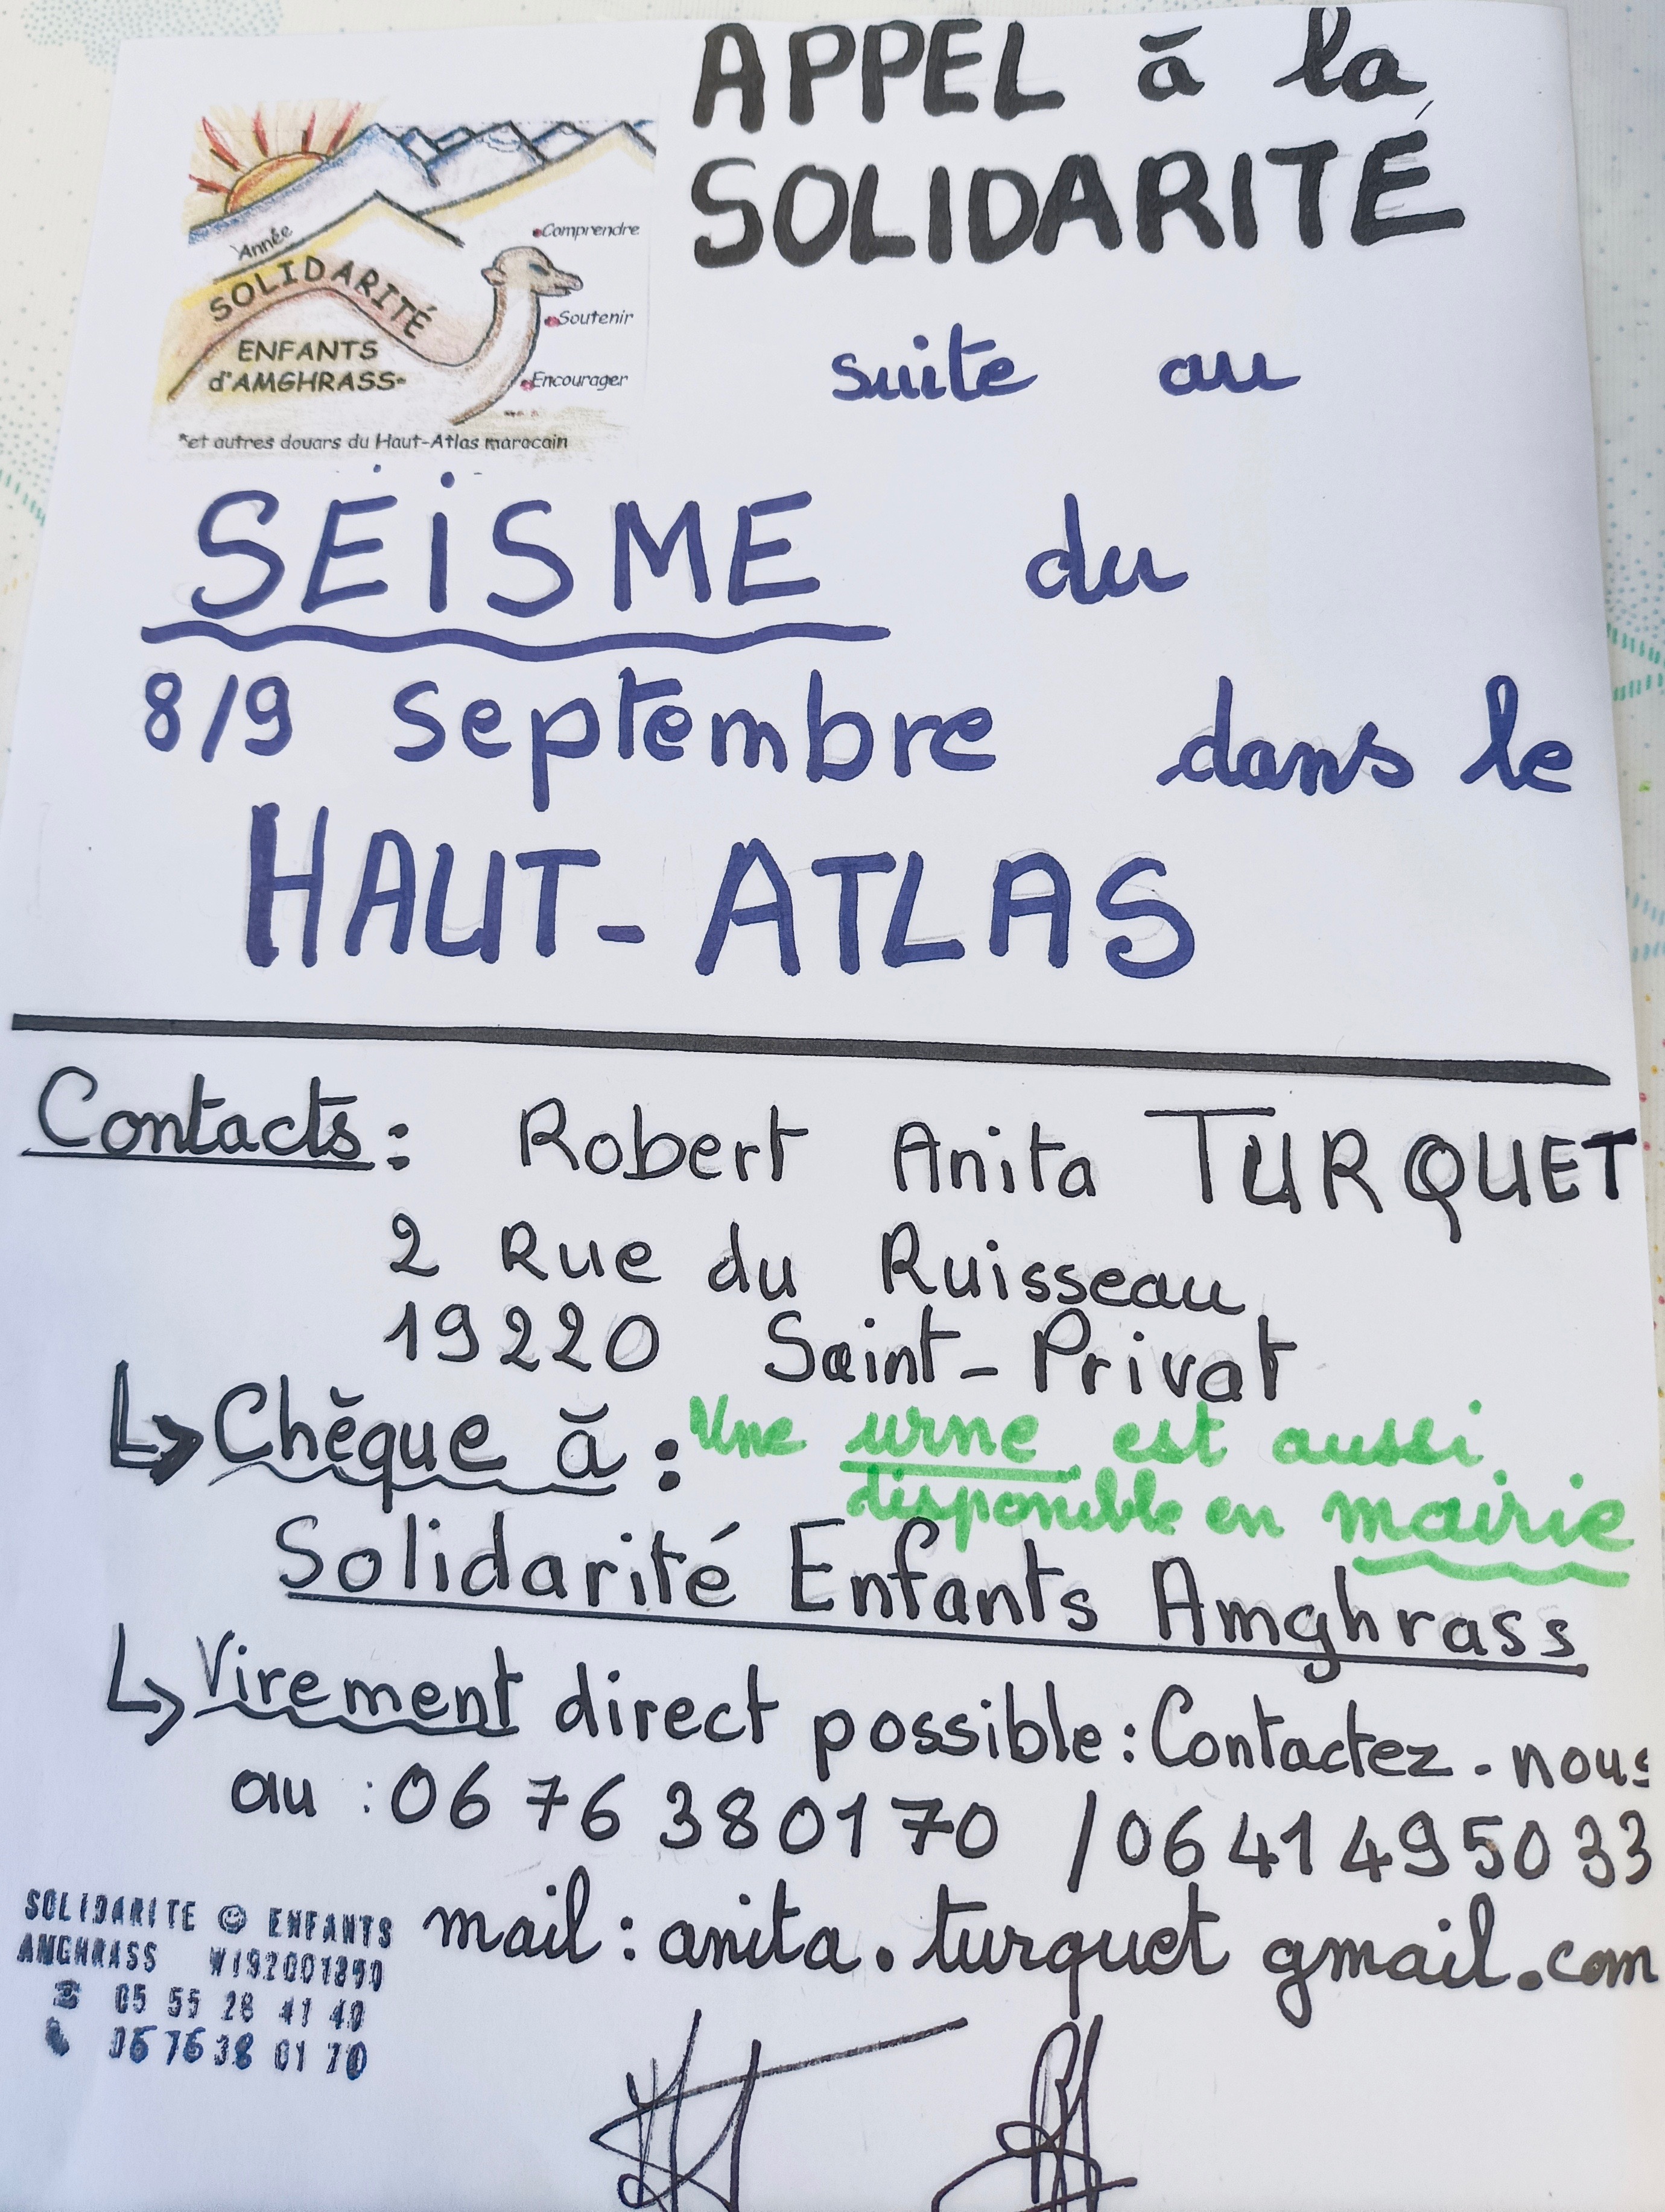 APPEL à la
SOLIDARITÉ
Année
SOLIDARITÉ
ENFANTS
d'AMGHRASS*
Comprendre
Soutenir
Encourager
*et autres douars du Haut-Atlas marocain
suite au
SEISME du
8/9 septembre dans le
HAUT-ATLAS
Contacts : Robert Anita TURQUET
2 Rue du Ruisseau
19220 Saint-Privat
Chèque à :
Une urne est aussi
disponible en mairie
Solidarité Enfants Amghrass
Virement direct possible : Contactez-nous
au : 06 76 38 01 70 / 06 41 49 50 33
mail : anita.turquet gmail.com
SOLIDARITE ☺ ENFANTS
AMGHRASS W192001890
05 55 28 41 40
06 76 38 01 70